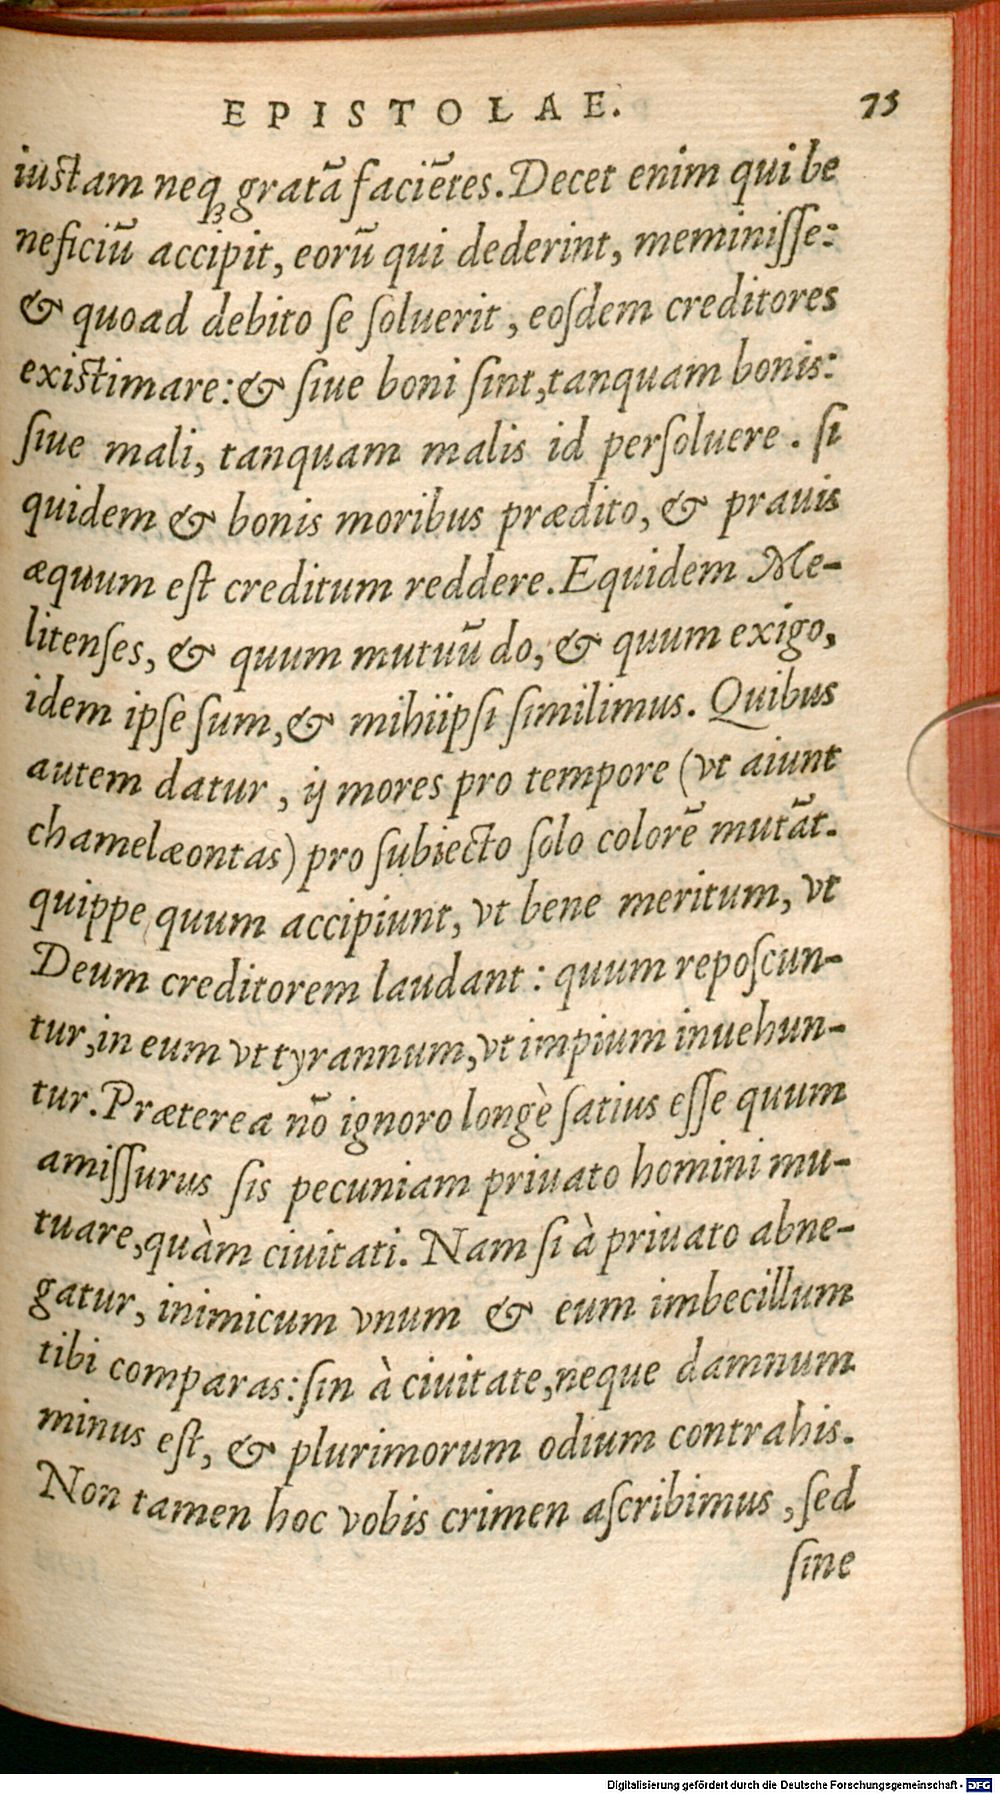 EPISTOLAE. 73
iustam neqꝫ gratā faciētes. Decet enim qui be
neficiū accipit, eorū qui dederint, meminiſſe:
& quoad debito ſe ſoluerit, eoſdem creditores
existimare: & ſiue boni ſint, tanquam bonis:
ſiue mali, tanquam malis id perſoluere. ſi
quidem & bonis moribus prædito, & prauis
æquum eſt creditum reddere. Equidem Me-
litenſes, & quum mutuū do, & quum exigo,
idem ipſe ſum, & mihiipſi ſimilimus. Quibus
autem datur, ij mores pro tempore (vt aiunt
chamelæontas) pro ſubiecto ſolo colorē mutāt.
quippe quum accipiunt, vt bene meritum, vt
Deum creditorem laudant: quum repoſcun-
tur, in eum vt tyrannum, vt impium inuehun-
tur. Præterea nō ignoro longè ſatius eſſe quum
amiſſurus ſis pecuniam priuato homini mu-
tuare, quàm ciuitati. Nam ſi à priuato abne-
gatur, inimicum vnum & eum imbecillum
tibi comparas: ſin à ciuitate, neque damnum
minus eſt, & plurimorum odium contrahis.
Non tamen hoc vobis crimen aſcribimus, ſed
ſine
Digitalisierung gefördert durch die Deutsche Forschungsgemeinschaft - DFG